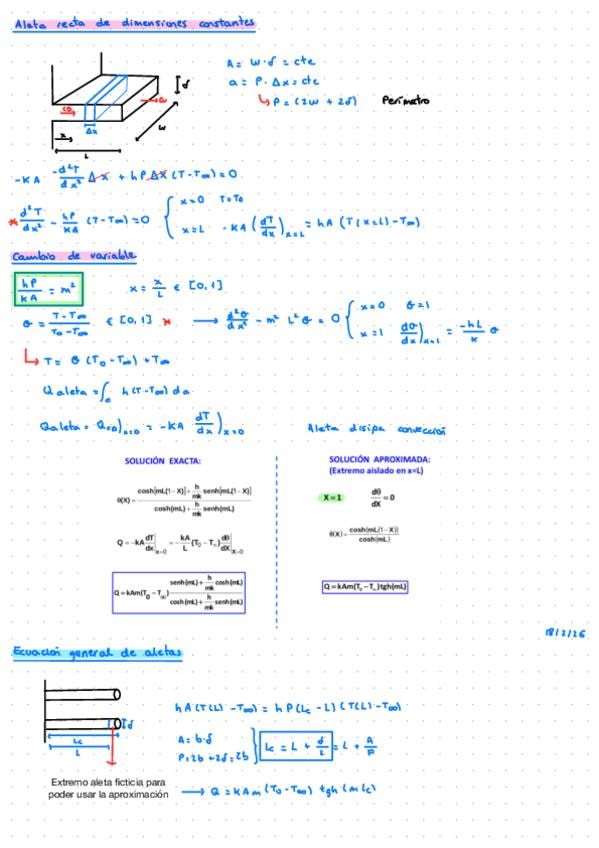 Aleta recta de dimensiones constantes
A = w·δ = cte
a = P·Δx = cte
↳ P = (2w + 2δ) Perímetro
δ
CD
Cv
x
Δx
w
L
-KA -d²T/dx² Δx + hPΔx (T-T∞) = 0
* d²T/dx² - hP/KA (T-T∞) = 0 { x=0 T=T0
x=L -KA (dT/dx)x=L = hA (T(x=L) - T∞)
Cambio de variable
hP/KA = m² x = x/L ∈ [0,1]
θ = T-T∞/T0-T∞ ∈ [0,1] * → d²θ/dx² - m² L² θ = 0 { x=0 θ=1
x=1 dθ/dx)x=1 = -hL/k θ
↳ T = θ (T0-T∞) + T∞
Q aleta = ∫a h(T-T∞) da
Qaleta = QCD)x=0 = -KA dT/dx)x=0 Aleta disipa convección
SOLUCIÓN EXACTA:
θ(X) = cosh[mL(1-X)] + h/mk senh[mL(1-X)] / cosh(mL) + h/mk senh(mL)
Q = -kA dT/dx|x=0 = -kA/L (T0 - T∞) dθ/dX|X=0
Q = kAm(T0 - T∞) senh(mL) + h/mk cosh(mL) / cosh(mL) + h/mk senh(mL)
SOLUCIÓN APROXIMADA:
(Extremo aislado en x=L)
X=1 dθ/dX = 0
θ(X) = cosh(mL(1-X)) / cosh(mL)
Q = kAm(T0 - T∞)tgh(mL)
18/2/26
Ecuación general de aletas
δ
Lc
L
hA(T(L) - T∞) = hP(Lc - L)(T(L) - T∞)
A = b·δ
P = 2b + 2δ = 2b } Lc = L + δ/2 = L + A/P
Extremo aleta ficticia para
poder usar la aproximación
→ Q = kAm (T0-T∞) tgh(mLc)